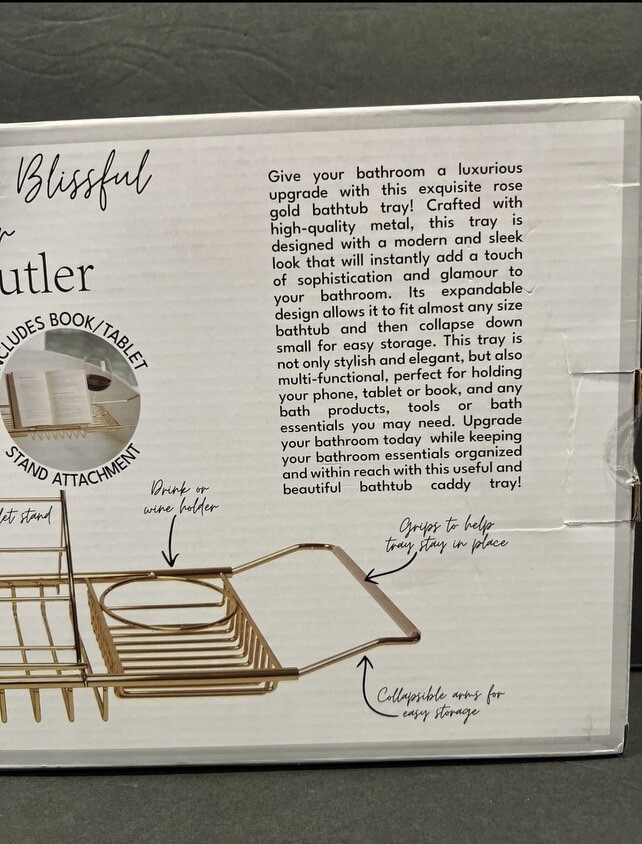 Blissful
utler
NCLUDES BOOK/TABLET
STAND ATTACHMENT
let stand
Give your bathroom a luxurious
upgrade with this exquisite rose
gold bathtub tray! Crafted with
high-quality metal, this tray is
designed with a modern and sleek
look that will instantly add a touch
of sophistication and glamour to
your bathroom. Its expandable
design allows it to fit almost any size
bathtub and then collapse down
small for easy storage. This tray is
not only stylish and elegant, but also
multi-functional, perfect for holding
your phone, tablet or book, and any
bath products, tools or bath
essentials you may need. Upgrade
your bathroom today while keeping
your bathroom essentials organized
and within reach with this useful and
beautiful bathtub caddy tray!
Drink or
wine holder
Grips to help
tray stay in place
Collapsible arms for
easy storage